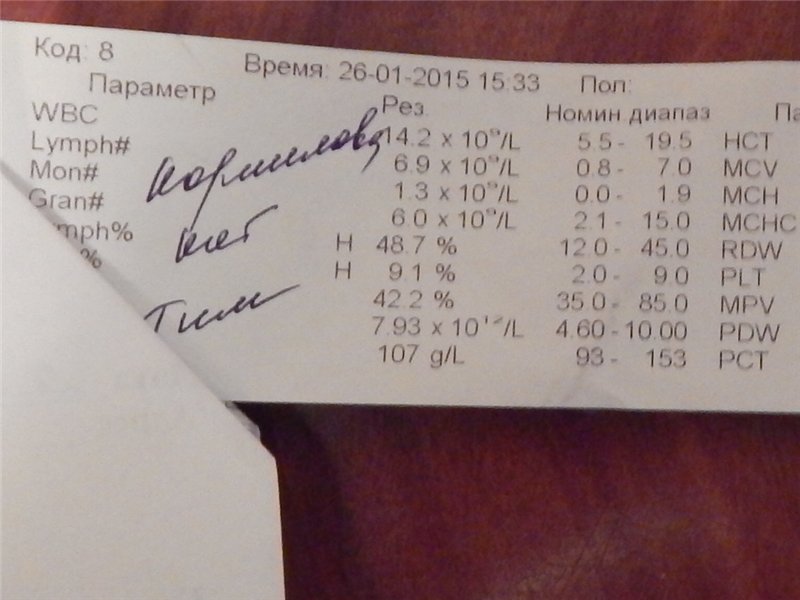 Код: 8 Время: 26-01-2015 15:33 Пол:
Параметр Рез. Номин диапаз
WBC 14.2 x 10⁹/L 5.5 - 19.5 HCT
Lymph# 6.9 x 10⁹/L 0.8 - 7.0 MCV
Mon# 1.3 x 10⁹/L 0.0 - 1.9 MCH
Gran# 6.0 x 10⁹/L 2.1 - 15.0 MCHC
ymph% H 48.7 % 12.0 - 45.0 RDW
% H 9.1 % 2.0 - 9.0 PLT
42.2 % 35.0 - 85.0 MPV
7.93 x 10¹²/L 4.60 - 10.00 PDW
107 g/L 93 - 153 PCT
Тим